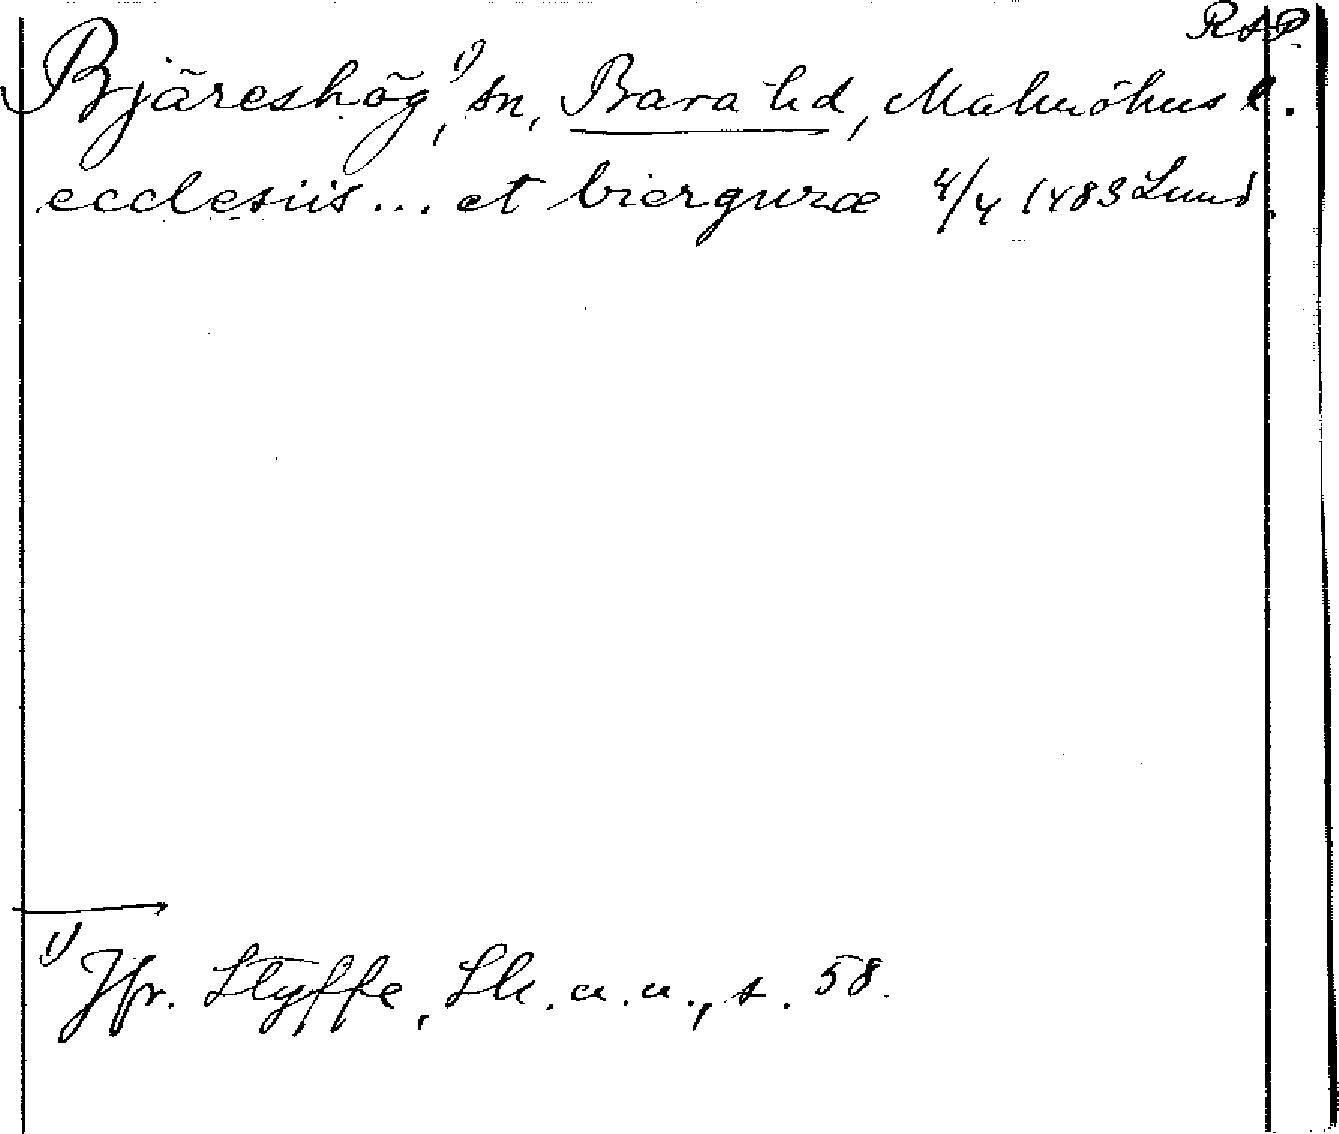 RAP.
Bjäreshög,¹⁾ sn, Bara hd, Malmöhus l.
ecclesiis... et bierguræ 4/4 1483 Lund.
¹⁾ Jfr. Styffe, Sk. u. u., s. 58.